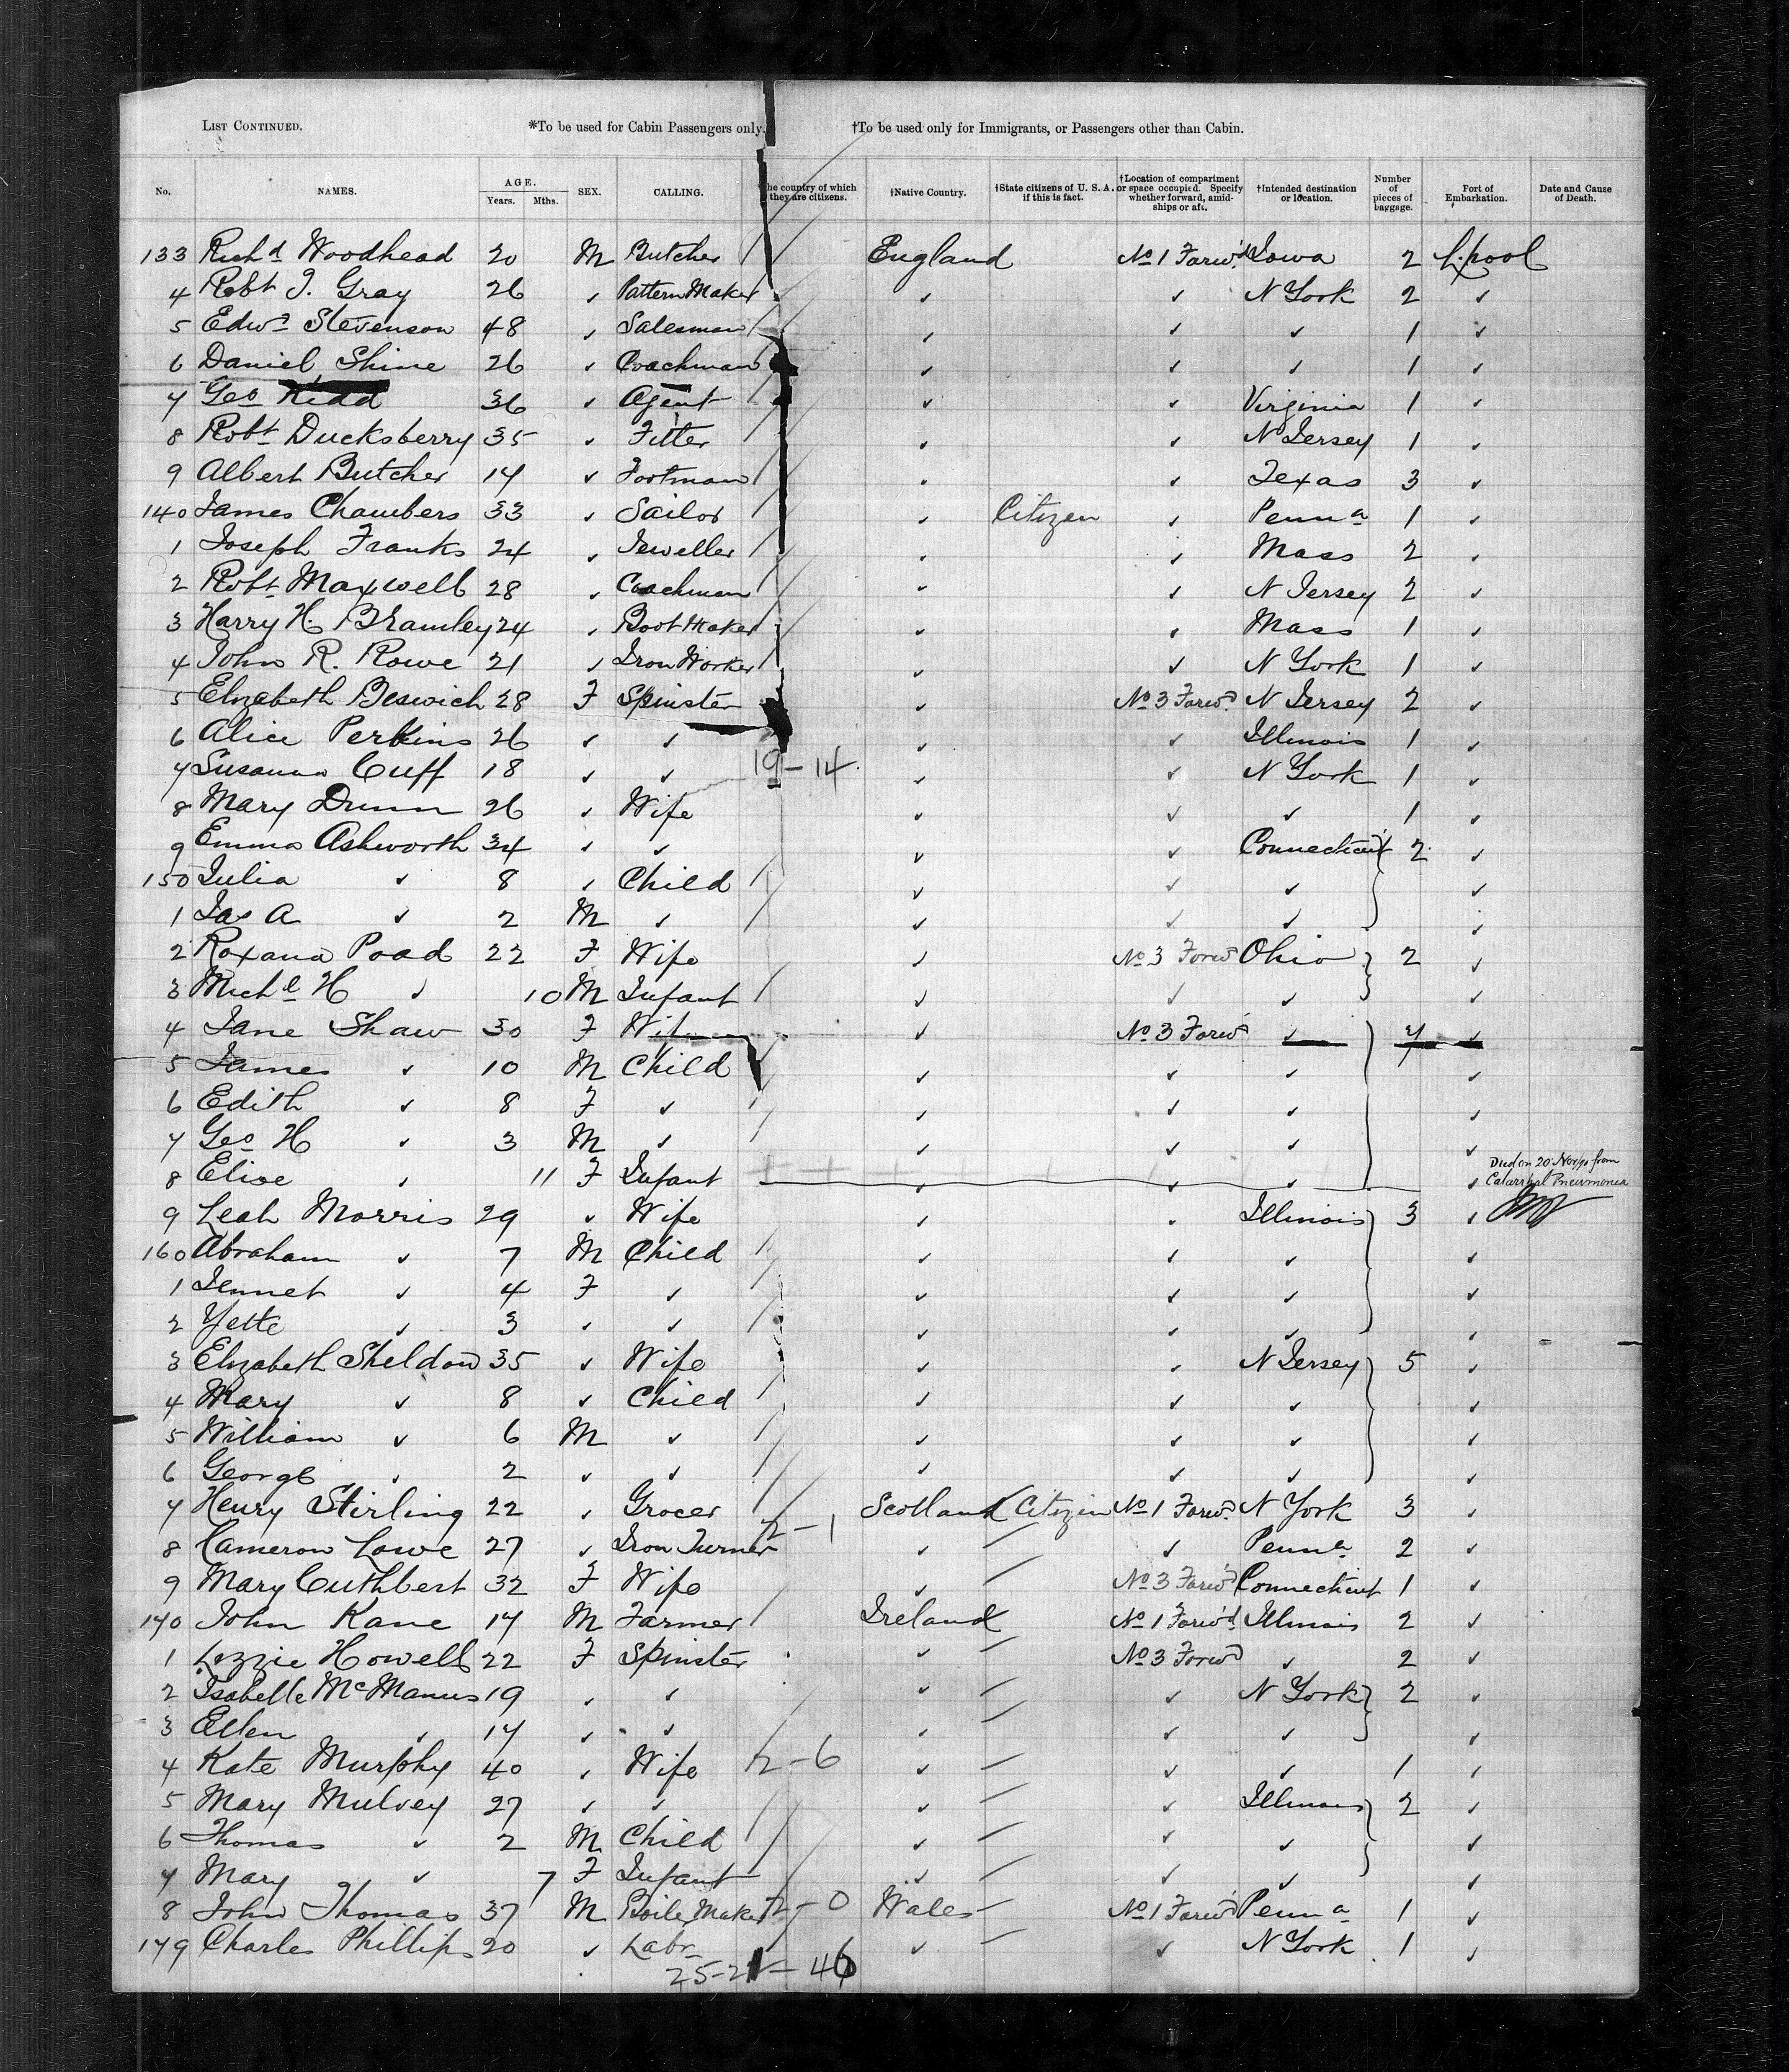 LIST CONTINUED. *To be used for Cabin Passengers only. †To be used only for Immigrants, or Passengers other than Cabin.
No. NAMES. AGE. Years. Mths. SEX. CALLING. The country of which they are citizens. †Native Country. †State citizens of U. S. A. if this is fact. †Location of compartment or space occupied. Specify whether forward, amidships or aft. †Intended destination or location. Number of pieces of baggage. Port of Embarkation. Date and Cause of Death.
133 Richd Woodhead 20 M Butcher England No 1 Forwd. Iowa 2 L.pool
4 Robt J. Gray 26 ✓ Pattern Maker ✓ ✓ N York 2 ✓
5 Edwd Stevenson 48 ✓ Salesman ✓ ✓ ✓ 1 ✓
6 Daniel Shine 26 ✓ Coachman ✓ ✓ ✓ 1 ✓
7 Geo Kidd 36 ✓ Agent ✓ ✓ Virginia 1 ✓
8 Robt Ducksberry 35 ✓ Fitter ✓ ✓ N Jersey 1 ✓
9 Albert Butcher 17 ✓ Footman ✓ ✓ Texas 3 ✓
140 James Chambers 33 ✓ Sailor ✓ Citizen ✓ Penna 1 ✓
1 Joseph Franks 24 ✓ Jeweller ✓ ✓ Mass 2 ✓
2 Robt Maxwell 28 ✓ Coachman ✓ ✓ N Jersey 2 ✓
3 Harry H. Bramley 24 ✓ Boot Maker ✓ ✓ Mass 1 ✓
4 John R. Rowe 21 ✓ Iron Worker ✓ ✓ N York 1 ✓
5 Elizabeth Beswich 28 F Spinster ✓ No 3 Forwd. N Jersey 2 ✓
6 Alice Perkins 26 ✓ ✓ ✓ ✓ Illinois 1 ✓
7 Susanna Cuff 18 ✓ ✓ 19-14 ✓ ✓ N York 1 ✓
8 Mary Dunn 26 ✓ Wife ✓ ✓ ✓ 1 ✓
9 Emma Ashworth 34 ✓ ✓ ✓ ✓ Connecticut 2 ✓
150 Julia ✓ 8 ✓ Child ✓ ✓ ✓ ✓
1 Jas A ✓ 2 M ✓ ✓ ✓ ✓ ✓
2 Roxana Poad 22 F Wife ✓ No 3 Forwd Ohio 2 ✓
3 Michl H ✓ 10 M Infant ✓ ✓ ✓ ✓
4 Jane Shaw 30 F Wife ✓ No 3 Forwd ✓ 7 ✓
5 James ✓ 10 M Child ✓ ✓ ✓ ✓
6 Edith ✓ 8 F ✓ ✓ ✓ ✓ ✓
7 Geo H ✓ 3 M ✓ ✓ ✓ ✓ ✓
8 Elise ✓ 11 F Infant ✓ ✓ ✓ ✓ Died on 20 from Catarrhal Pneumonia
9 Leah Morris 29 ✓ Wife ✓ ✓ Illinois 3 ✓
160 Abraham ✓ 7 M Child ✓ ✓ ✓ ✓
1 Jennet ✓ 4 F ✓ ✓ ✓ ✓ ✓
2 Yette ✓ 3 ✓ ✓ ✓ ✓ ✓ ✓
3 Elizabeth Sheldon 35 ✓ Wife ✓ ✓ N Jersey 5 ✓
4 Mary ✓ 8 ✓ Child ✓ ✓ ✓ ✓
5 William ✓ 6 M ✓ ✓ ✓ ✓ ✓
6 George ✓ 2 ✓ ✓ ✓ ✓ ✓ ✓
7 Henry Stirling 22 ✓ Grocer Scotland Citizen No 1 Forwd. N York 3 ✓
8 Cameron Lowe 27 ✓ Iron Turner 2-1 ✓ ✓ Penna 2 ✓
9 Mary Cuthbert 32 F Wife ✓ No 3 Forwd Connecticut 1 ✓
170 John Kane 17 M Farmer Ireland No 1 Forwd. Illinois 2 ✓
1 Lizzie Howell 22 F Spinster ✓ No 3 Forwd ✓ 2 ✓
2 Isabelle McManus 19 ✓ ✓ ✓ ✓ N York 2 ✓
3 Ellen ✓ 17 ✓ ✓ ✓ ✓ ✓ ✓
4 Kate Murphy 40 ✓ Wife 2-6 ✓ ✓ ✓ 1 ✓
5 Mary Mulvey 27 ✓ ✓ ✓ ✓ Illinois 2 ✓
6 Thomas ✓ 2 M Child ✓ ✓ ✓ ✓
7 Mary ✓ 7 F Infant ✓ ✓ ✓ ✓
8 John Thomas 37 M Boiler Maker 2-0 Wales No 1 Forwd Penna 1 ✓
179 Charles Phillips 20 ✓ Labr ✓ ✓ N York 1 ✓
25-21-46